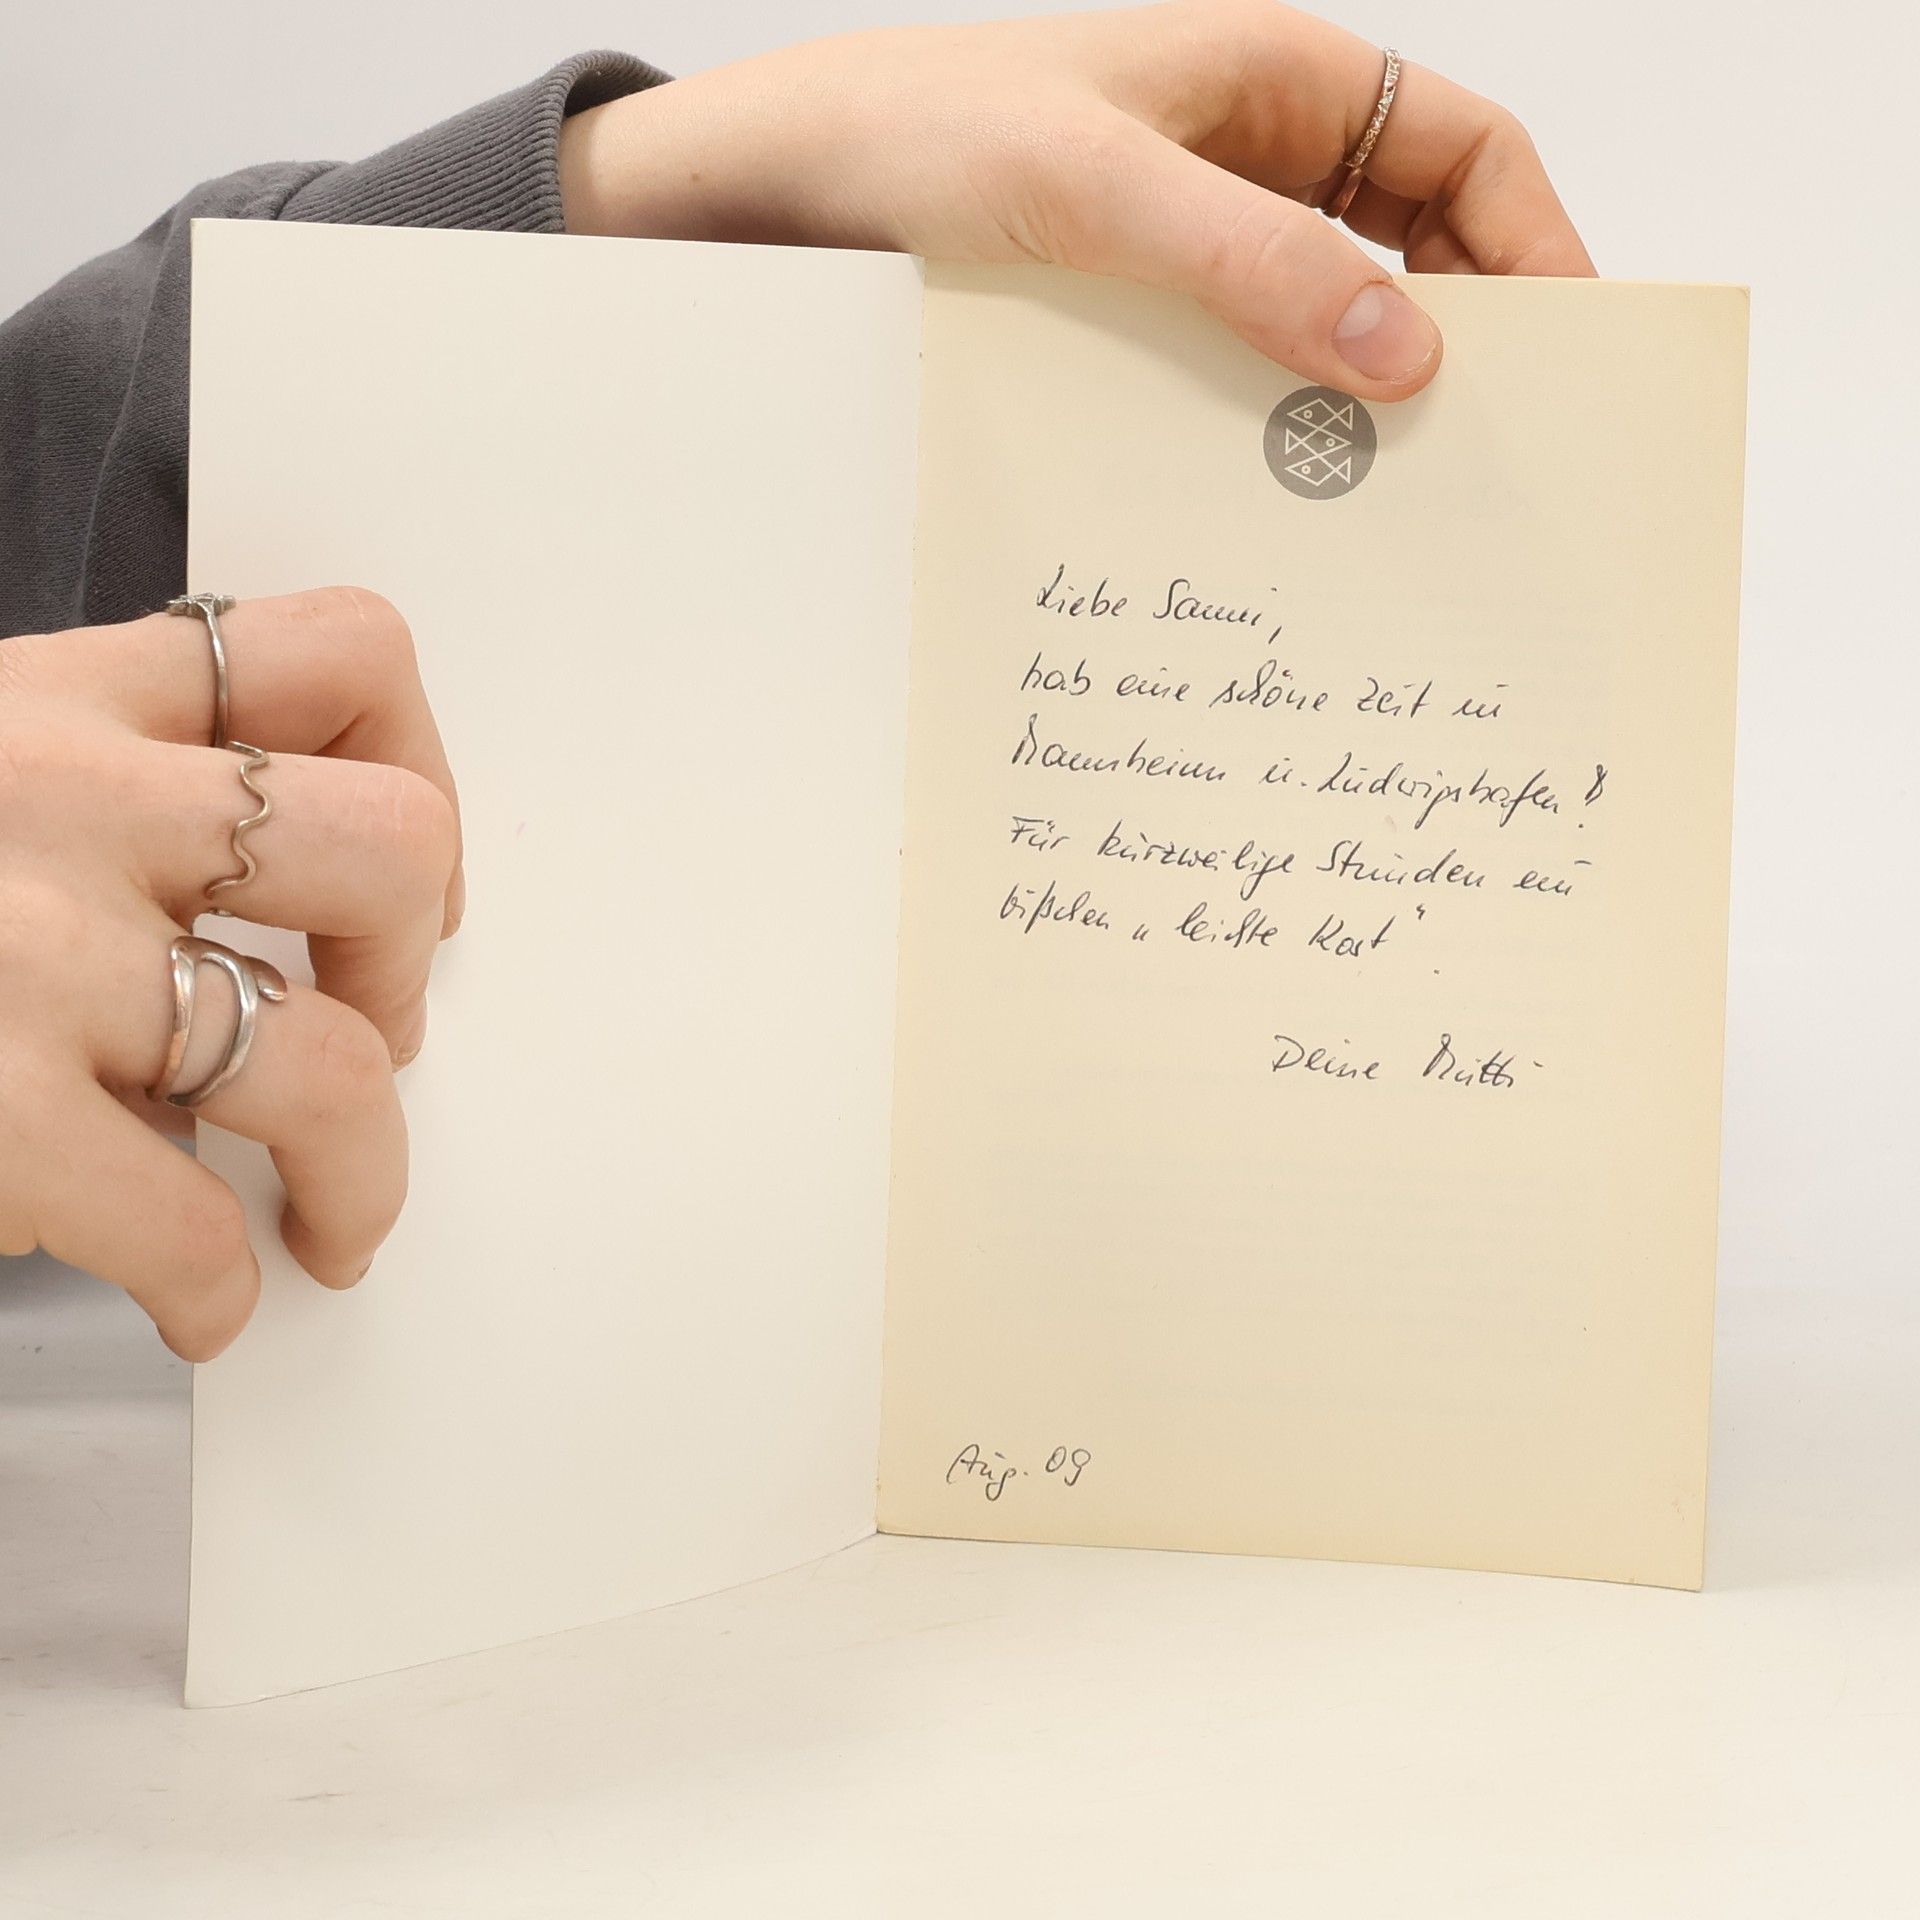 Liebe Sanni,
hab eine schöne Zeit in
Mannheim u. Ludwigshafen!
Für kurzweilige Stunden ein
bißchen „leichte Kost“.
Deine Mutti
Aug. 09